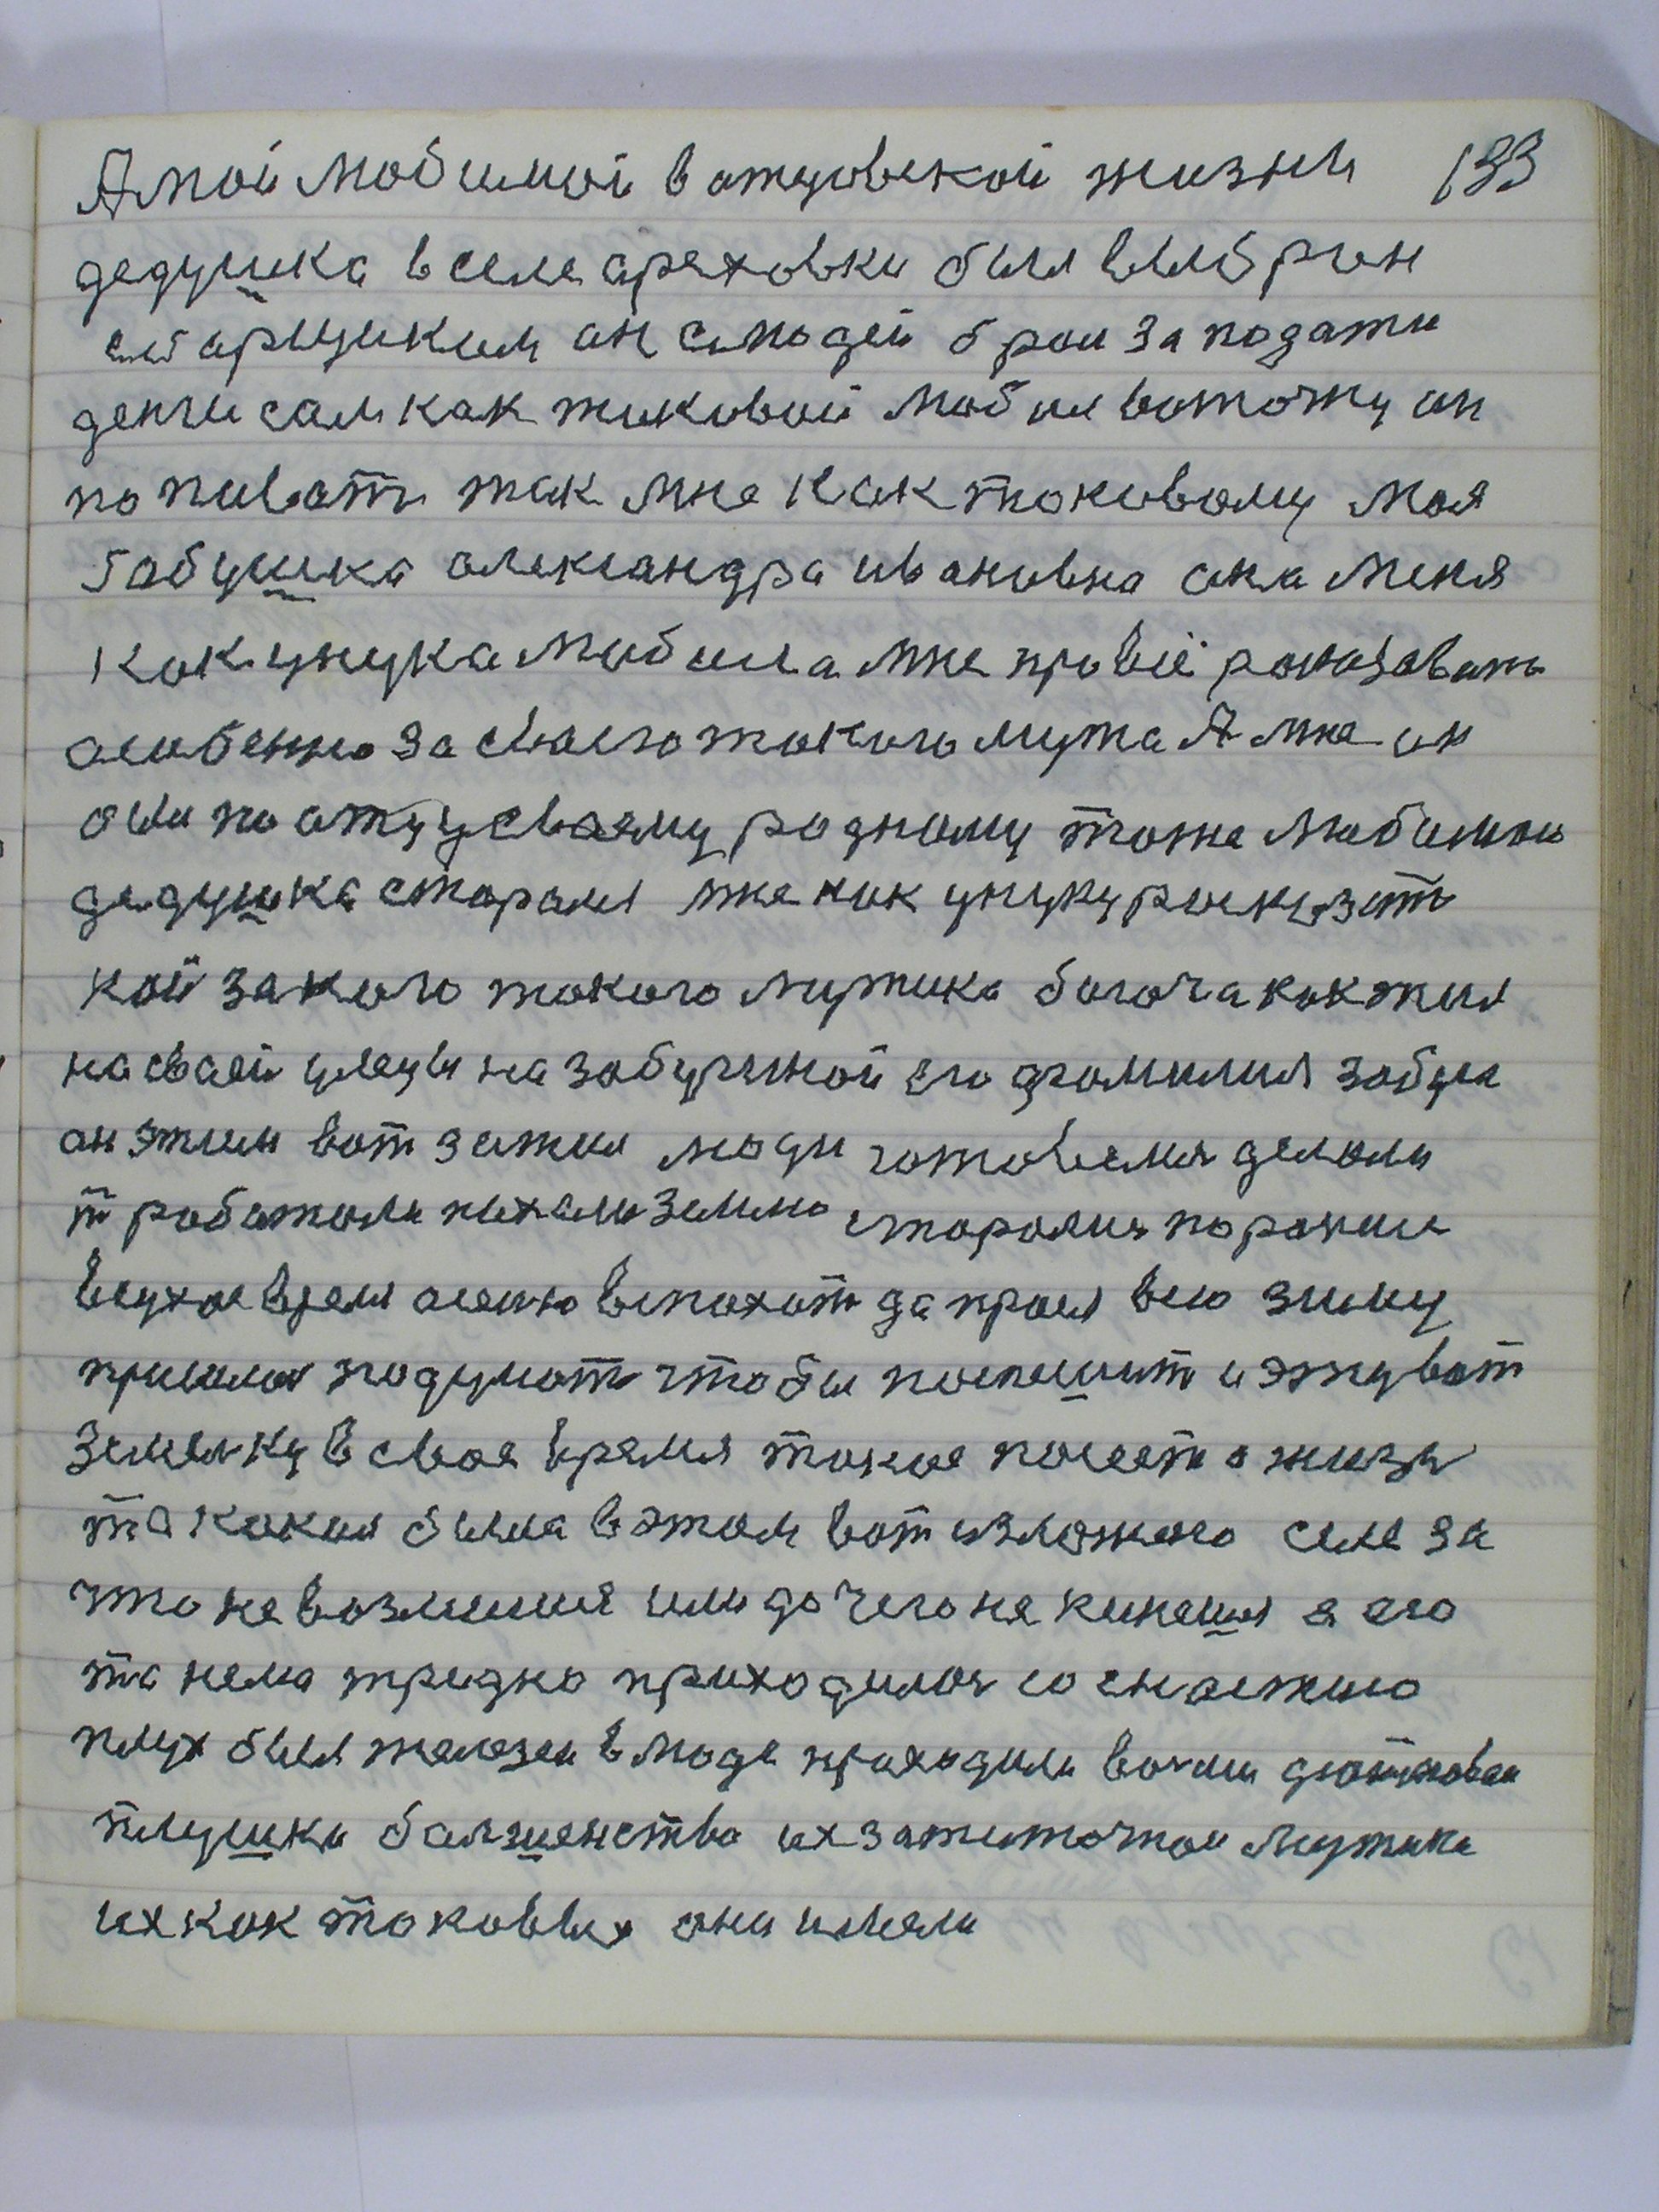 А мой любимой в отцовской жизни 133
дедушка в селе ореховки был выбран
сборщиком он слюдей брал за подати
денги сам как таковой любил вотточку он
попиват так мне как таковому моя
бабушка александра ивановна она меня
как унука любила мне про всё росказоват
особенно за своего такого мужа А мне он
был по отцу своему родному тоже любимый
дедушка старался мне как унуку росказат
кой за кого такого мужика богоча как жил
на своей улеци на забугьяной его фамилия
он этим вот зажил люди готовилися делали
т работали пихали землю старалися пораньше
в сухое время осеню вспохат да проел всю зиму
пришлося подумат чтобы поспешит и эжуват
земелку в свое время такое посеет о жизн
та какая была в этом вот изложено селе за
что не возмишся или до чего не кинешся а его
та нема трудно приходилося со снастию
плух был железен в моде проходили вочии
плушки балшенство их зажиточное мужики
их как таковых они имели